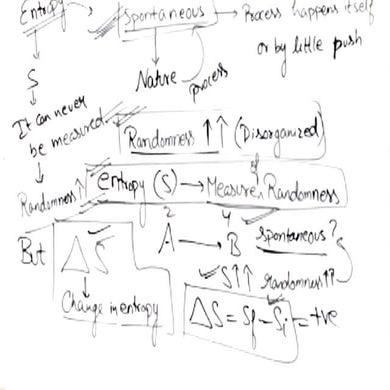 Entropy → Spontaneous → Process happens itself
or by little push
Nature process
S
It can never
be measured.
Randomness ↑↑ (Disorganized)
Randomness ↑
entropy (S) → Measure of Randomness
But ΔS
Change in entropy
2 4
A → B Spontaneous?
S↑↑ randomness↑↑
ΔS = Sf - Si = +ve